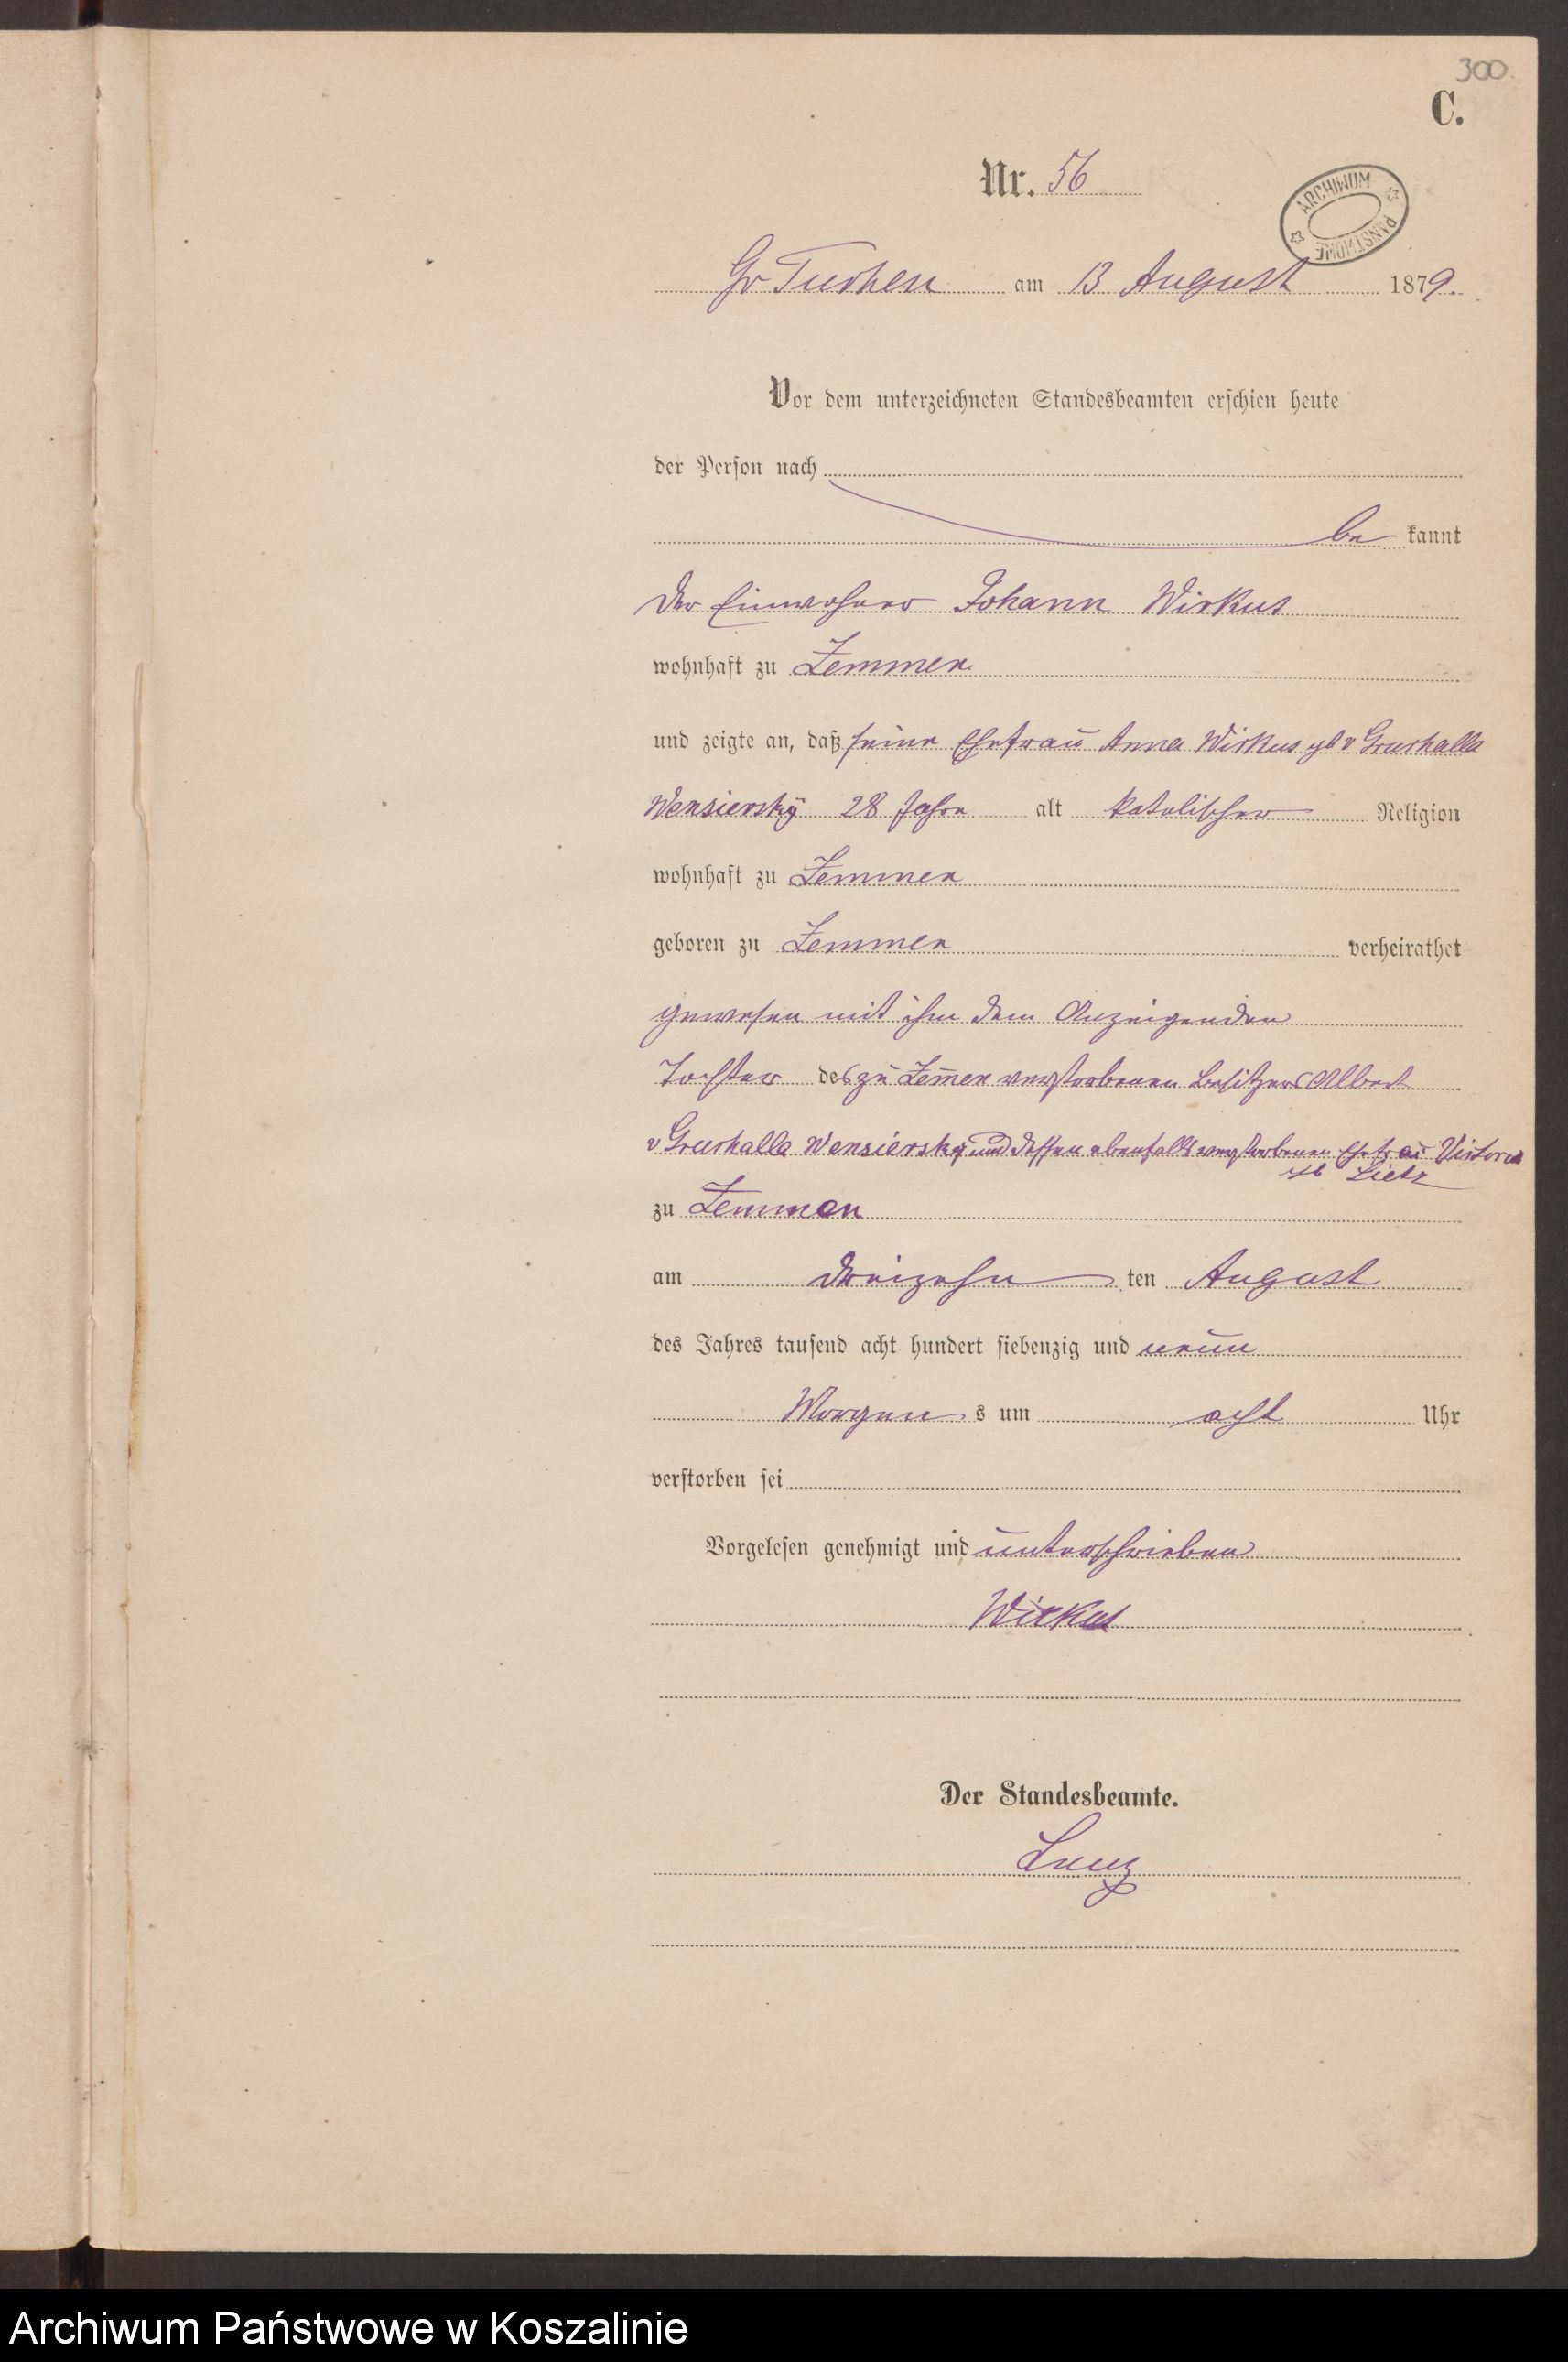 300.
C.
Nr. 56
ARCHIWUM PAŃSTWOWE
Gr Tuchen am 13 August 1879.
Vor dem unterzeichneten Standesbeamten erschien heute
der Person nach
be kannt
der Einwohner Johann Wirkus
wohnhaft zu Zemmen
und zeigte an, daß seine Ehefrau Anna Wirkus gb v
Wensiersky 28 Jahre alt katolischer Religion
wohnhaft zu Zemmen
geboren zu Zemmen verheirathet
gewesen mit ihm dem Anzeigenden
Tochter des zu Zem̄en verstorbenen Besitzers Albert
v Wensiersky und dessen ebenfalls verstorbenen Ehefrau
gb Lietz
zu Zemmen
am dreizehn ten August
des Jahres tausend acht hundert siebenzig und neun
Morgen s um acht Uhr
verstorben sei
Vorgelesen genehmigt und unterschrieben
Wirkus
Der Standesbeamte.
Archiwum Państwowe w Koszalinie